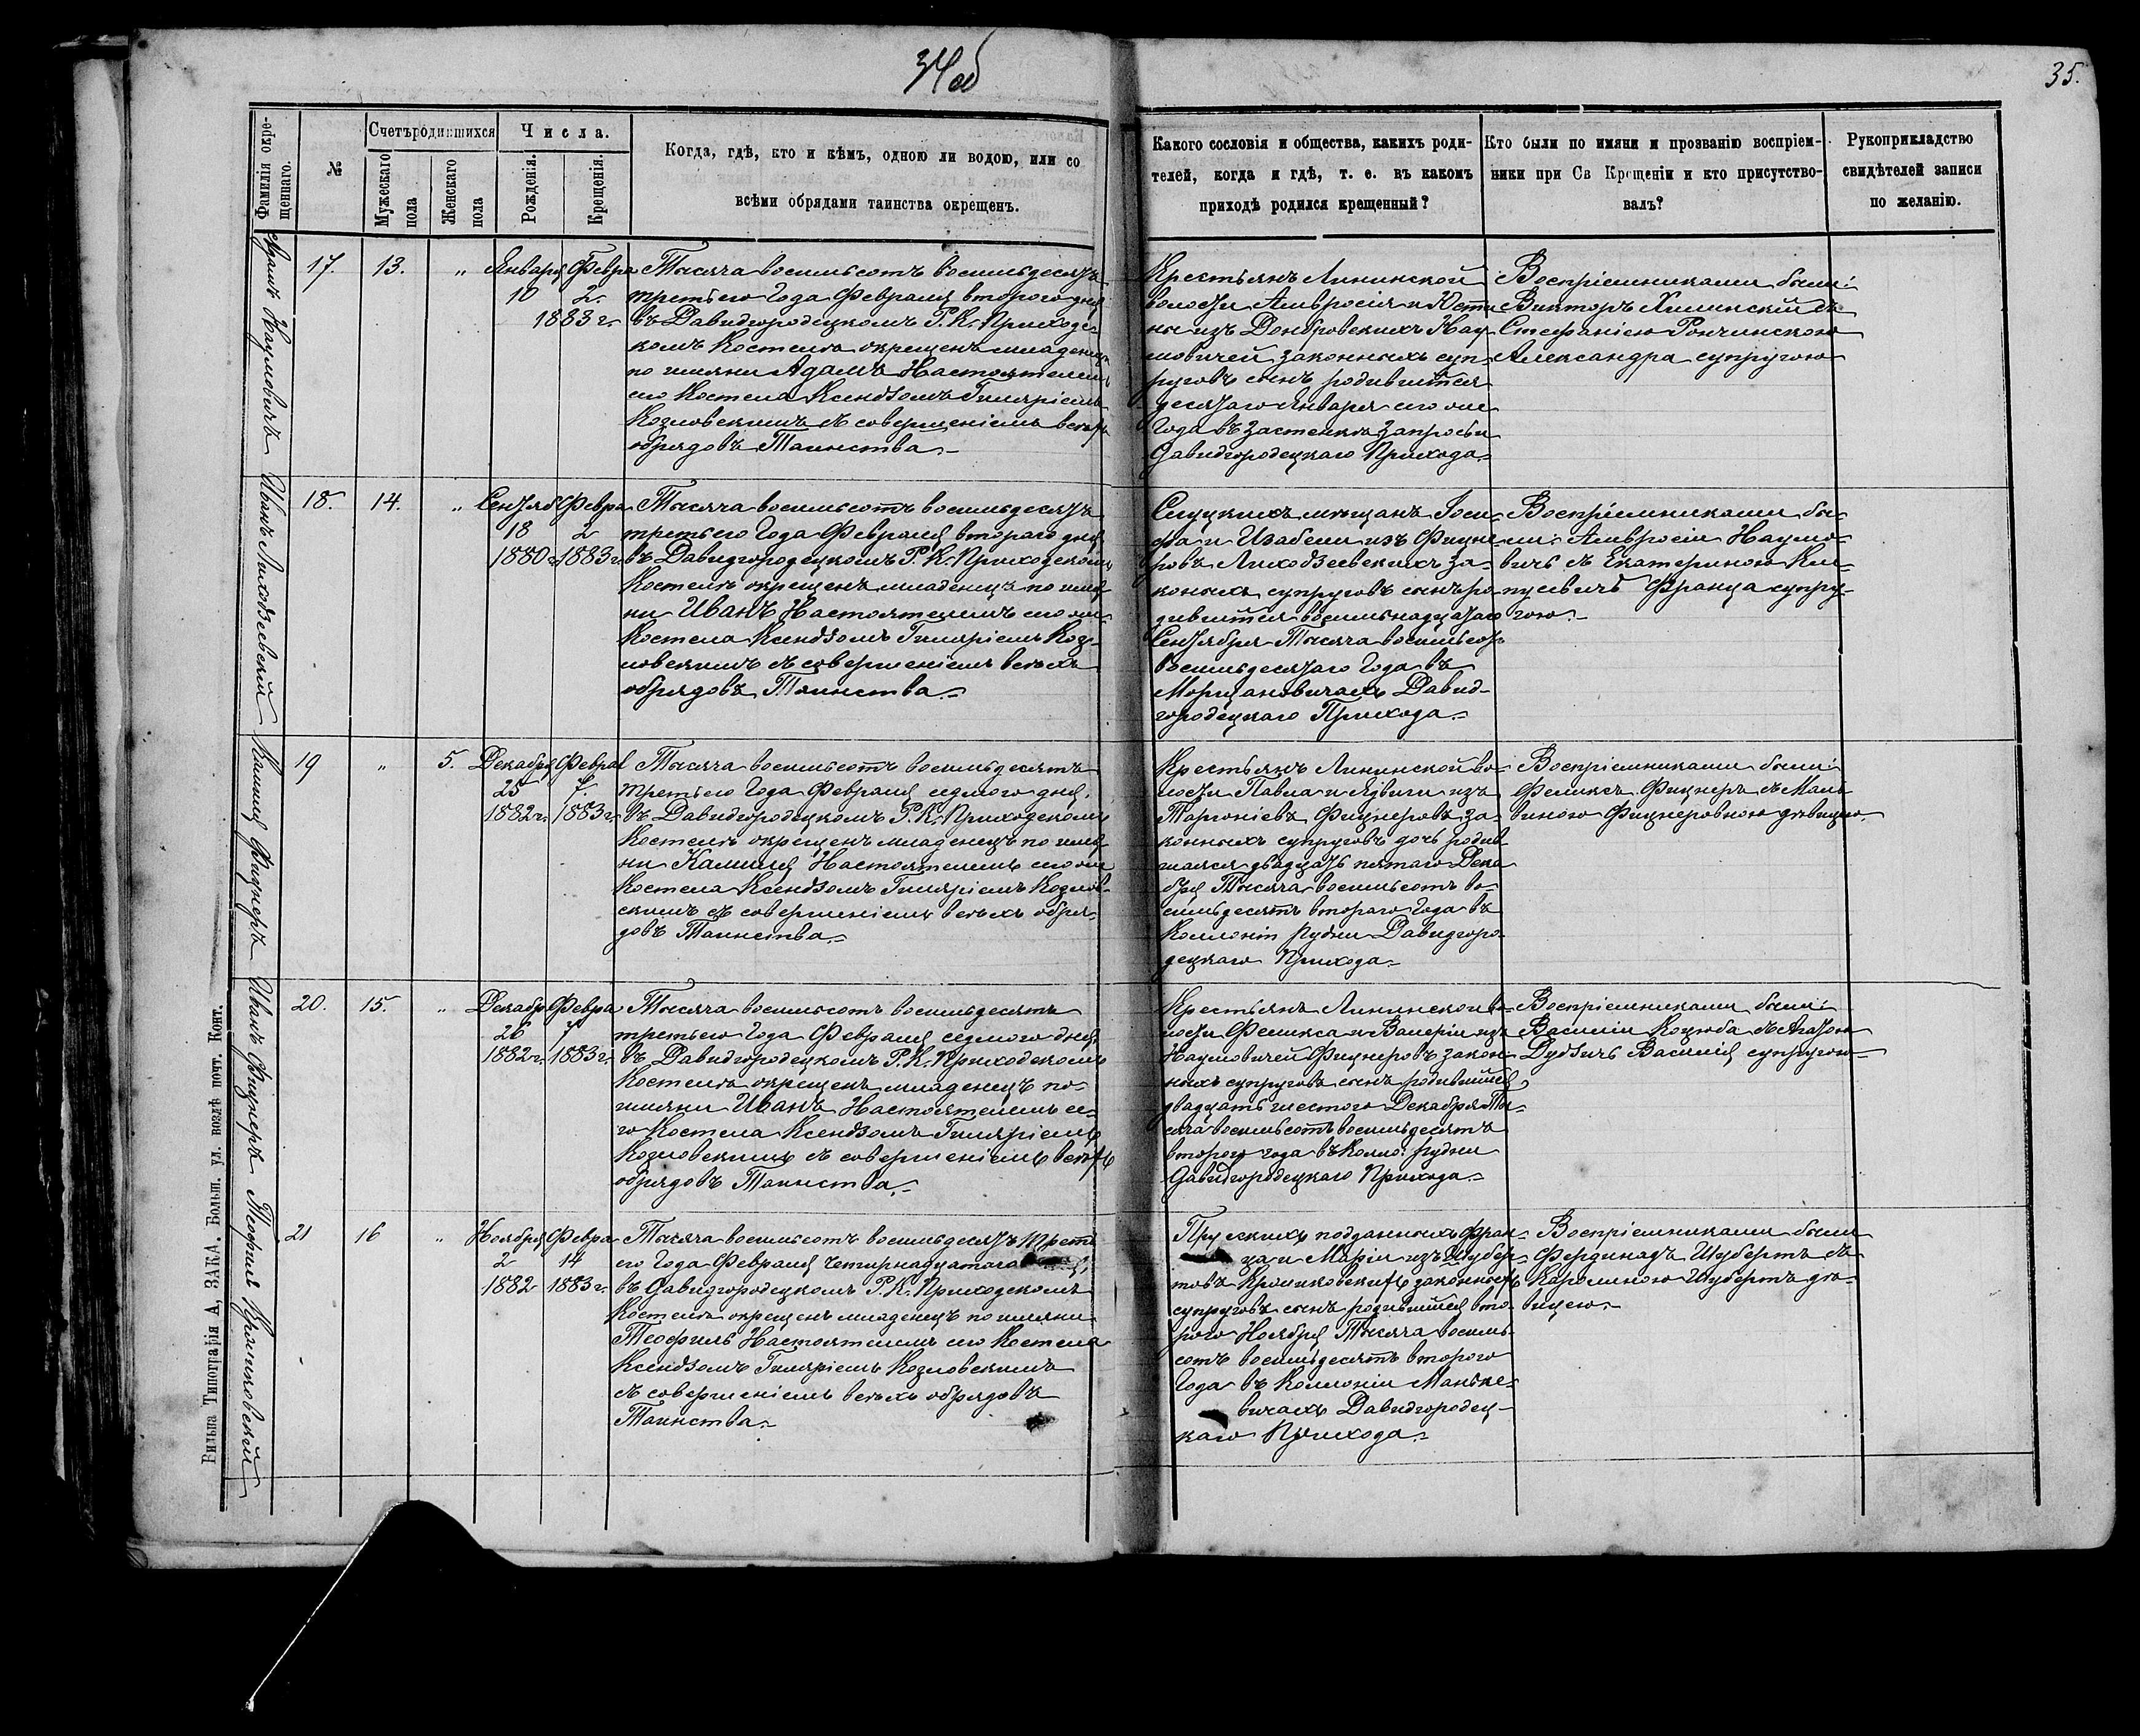 34 об
35.
Фамилія окре-
щеннаго.
№
Счетъ родившихся
Мужескаго
пола
Женскаго
пола
Числа.
Рожденія.
Крещенія.
Когда, гдѣ, кто и кѣмъ, одною ли водою, или со
всѣми обрядами таинства окрещенъ.
Какого сословія и общества, какихъ роди-
телей, когда и гдѣ, т. е. въ какомъ
приходѣ родился крещенный?
Кто были по имяни и прозванію воспріем-
ники при Св Крещеніи и кто присутство-
валъ?
Рукоприкладство
свидѣтелей записи
по желанію.
Адамъ Наумовичъ
17.
13.
"
Января Февра
10 2.
1883 г.
Тысяча восемьсотъ восемьдесятъ
третьего Года Февраля второго дня
въ Давидгородецкомъ Р. К. Приход-
комъ Костелѣ окрещенъ младенецъ
по имяни Адамъ Настоятелемъ
его Костела Ксендзомъ Гиляріемъ
Козловскимъ съ совершеніемъ всѣхъ
обрядовъ Таинства.-
Крестьянъ Лининской
волости Амвросія и Юсти
ны изъ Домбровскихъ Нау-
мовичей законныхъ суп-
руговъ сынъ родившійся
десятаго Января сего же
Года въ застенкѣ Запросьи
Давидгородецкаго Прихода.-
Воспріемниками были:
Викторъ Хилинскій съ
Стефаніею Рончинскою
Александра супругою
Иванъ Лиходзеевскій
18.
14.
"
Сентяб Февра
18 2
1880 г. 1883 г.
Тысяча восемьсотъ восемьдесятъ
третьего Года Февраля второго дня
въ Давидгородецкомъ Р. К. Приходскомъ
Костелѣ окрещенъ младенецъ по имя-
ни Иванъ Настоятелемъ его же
Костела Ксендзомъ Гиляріемъ Коз-
ловскимъ съ совершеніемъ всѣхъ
обрядовъ Таинства.-
Слуцкихъ мѣщанъ Іоси-
фа и Изабели изъ Фицне-
ровъ Лиходзеевскихъ за-
конныхъ супруговъ сынъ ро-
дившійся восемьнадцатаго
Сентября Тысяча восемьсотъ
восемьдесятаго Года въ
Морцановичахъ Давид-
городецкаго Прихода.-
Воспріемниками бы-
ли: Амвросій Наумо-
вичъ съ Екатериною Кли-
пусевичъ Франца супру-
гою.-
Камиля Фицнеръ
19
"
5.
Декабря Феврал
25 7.
1882 г. 1883 г.
Тысяча восемьсотъ восемьдесятъ
третьего Года Февраля седмого дня.
въ Давидгородецкомъ Р. К. Приходскомъ
Костелѣ окрещенъ младенецъ по имя-
ни Камиля Настоятелемъ его же
Костела Ксендзомъ Гиляріемъ Козлов-
скимъ съ совершеніемъ всѣхъ обря-
довъ Таинства.-
Крестьянъ Лининской во-
лости Павла и Ядвиги изъ
Таргоніевъ Фицнеровъ за-
конныхъ супруговъ дочь родив-
шаяся двадцать пятаго Дека
бря Тысяча восемьсотъ во-
семьдесятъ второго Года въ
Коллоніи Рудни Давидгоро-
децкаго Прихода.-
Воспріемниками были:
Феликсъ Фицнеръ съ Маль
виною Фицнеровною дѣвицею.
Иванъ Фицнеръ
20.
15.
"
Декабр Февра
26 7
1882 г. 1883 г.
Тысяча восемьсотъ восемьдесятъ
третьего Года Февраля седмого дня
въ Давидгородецкомъ Р. К. Приходскомъ
Костелѣ окрещенъ младенецъ по-
имяни Иванъ Настоятелемъ се-
го Костела Ксендзомъ Гиляріемъ
Козловскимъ съ совершеніемъ всѣхъ
обрядовъ Таинства.-
Крестьянъ Лининской во-
лости Феликса и Валеріи изъ
Наумовичей Фицнеровъ закон-
ныхъ супруговъ сынъ родившійся
двадцать шестого Декабря Ты-
сяча восемьсотъ восемьдесятъ
второго года въ Колло: Рудни
Давидгородецкаго Прихода.-
Воспріемниками были:
Василій Коцюба съ Агатою
Дудзичъ Василія супругою
Теофилъ Кроликовскій
21
16
"
Ноября Февра
2 14
1882 1883 г.
Тысяча восемьсотъ восемьдесятъ треть
его Года Февраля четырнадцатаго
въ Давидгородецкомъ Р. К. Приходскомъ
Костелѣ окрещенъ младенецъ по имяни
Теофиль Настоятелемъ его Костела
Ксендзомъ Гиляріемъ Козловскимъ
съ совершеніемъ всѣхъ обрядовъ
Таинства.-
Прусскихъ подданныхъ Фран-
ца и Маріи изъ Шубер-
товъ Кроликовскихъ законныхъ
супруговъ сынъ родившійся вто-
рого Ноября Тысяча восемь-
сотъ восемьдесятъ второго
Года въ Коллоніи Маньке-
вичахъ Давидгородец-
каго Прихода.-
Воспріемниками были
Фердинадъ Шубертъ съ
Каролиною Шубертъ дѣ-
вицею.-
Вильна Типографія А, ЗАКА. Больш. ул. возлѣ почт. Конт.